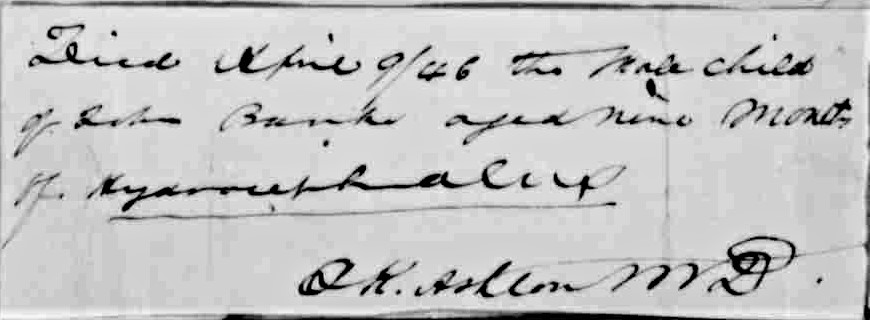 Died April 9/46 the Male child
of John Banks aged nine Months
of Hydrocephalus
K. Ashton MD.